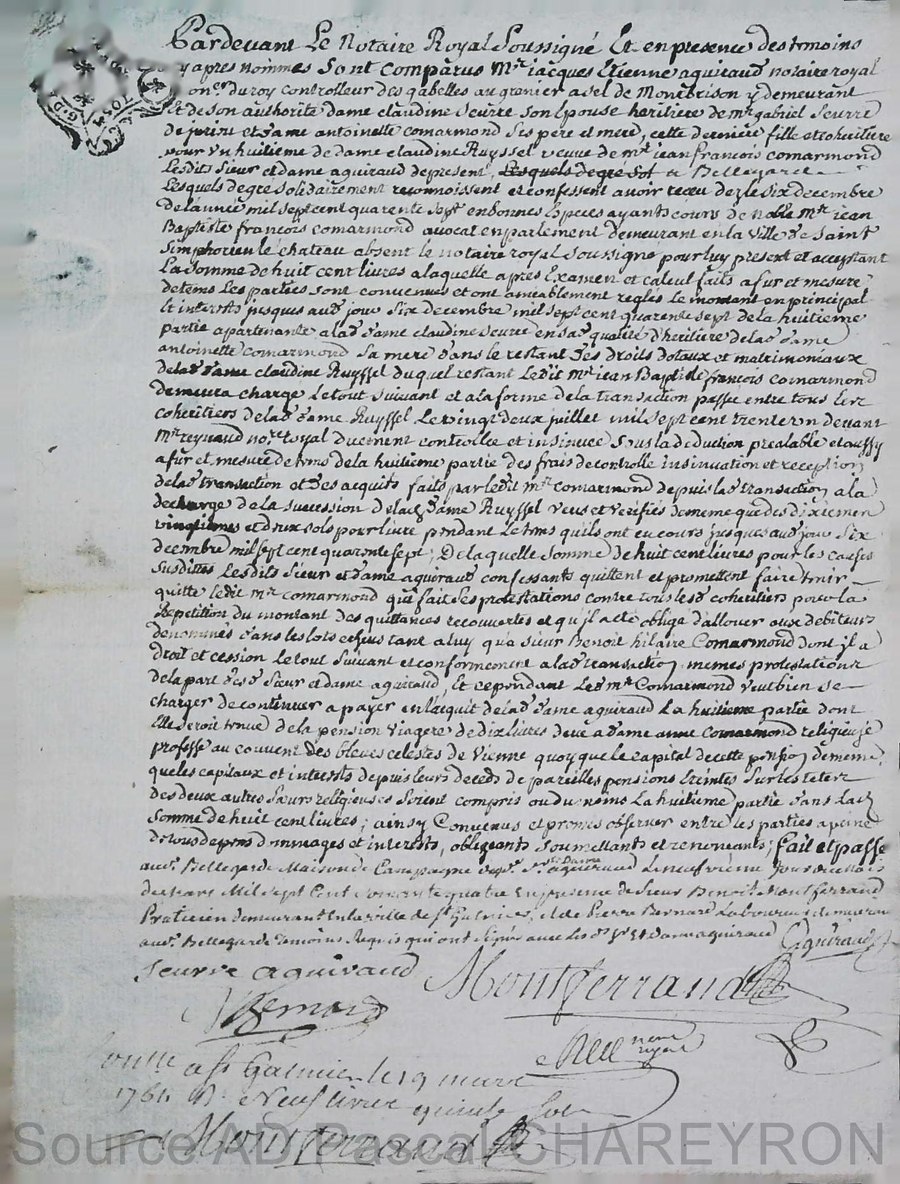 Pardevant Le Notaire Royal Soussigné Et en presence des temoins
cy apres nommés Sont Comparus Mr. jacques Etienne aguiraud notaire royal
du roy Controlleur des gabelles au grenier a sel de Montbrison y demeurant
Et de son authorité dame claudine Seurre Son Epouse heritiere de mr gabriel Seurre
de et dame antoinette comarmond Ses pere et mere, cette derniere fille et coheritiere
pour un huitieme de dame claudine Ruyssel veuve de mr. jean francois comarmond
Lesdits Sieur et dame aguiraud de present, Lesquels degre Sol a Bellegarde
Lesquels degre Solidairement reconnoissent et confessent avoir receu dez le Six decembre
de l'année mil Sept cent quarente Sept en bonnes Especes ayants cours de noble Mr. jean
Baptiste francois comarmond avocat en parlement demeurant en la ville de Saint
Simphorien le chateau absent le notaire royal Soussigné pour luy present et acceptant
La Somme de huit cent livres a laquelle apres Examen et calcul faits a fur et mesure
de tems Les parties Sont convenues et ont amiablement reglés Le montant en principal
Et interests jusques aud. jour Six decembre mil Sept cent quarente Sept de la huitieme
partie apartenante a lad. dame claudine Seurre en Sa qualité d'heritiere de lad. dame
antoinette comarmond Sa mere dans le restant des droits dotaux et matrimoniaux
de lad. dame claudine Ruyssel duquel restant Ledit Mr. jean Baptiste francois comarmond
demeura chargé Le tout Suivant et a la forme de la transaction passée entre tous Les
coheritiers de lad. dame Ruyssel Le vingt deux juillet mil Sept cent trente un devant
Mr. reynaud not. royal duement controllée et insinuée Sous la deduction prealable et aussy
a fur et mesure de tems de la huitieme partie des frais de controlle insinuation et reception
de lad. transaction et des acquits faits par ledit mr. comarmond depuis lad. transaction a la
decharge de la Succession de lad. dame Ruyssel veus et verifiés de meme que des dixiemes
vingtiemes et deux Sols pour livre pendant le tems qu'ils ont eu cours jusques aud. jour Six
decembre mil Sept cent quarente Sept; De laquelle Somme de huit cent livres pour les causes
Susdittes Lesdits Sieur et dame aguiraud confessants quittent et promettent faire tenir
quitte ledit mr. comarmond qui fait Ses protestations contre tous lesd. coheritiers pour la
Repetition du montant des quittances recouvertes et qu'il a eté obligé d'allouer aux debiteurs
denommés dans les lots echeus tant a luy qu'a Sieur Benoit hilaire Comarmond dont il a
droit et cession Le tout Suivant et conformement a lad. transaction, memes protestations
de la part desd. Sieur et dame aguiraud, Et cependant Led. mr. Comarmond veut bien se
charger de continuer a payer en l'acquit de lad. dame aguiraud La huitieme partie dont
Elle Seroit tenue de la pension viagere de dix livres deue a dame anne Comarmond religieuse
professe au couvent des bleues celestes de Vienne quoy que le capital de cette pension de meme
que les capitaux et interests depuis leurs deceds de pareilles pensions Eteintes Sur les tetes
des deux autres Soeurs religieuses Soient compris ou du moins La huitieme partie dans lad.
Somme de huit cent livres; ainsy Convenus et promis observer entre les parties a peine
de tous depens dommages et interests, obligeants Soumettants et renonçants; fait et passé
aud. Bellegarde Maison de Campagne desd. Sr. et dame aguiraud Le neufvieme jour du Mois
de Mars Mil Sept Cent Soixante quatre En presence de Sieur Benoit Montferrand
Praticien demeurant En la ville de St Galmier, et de Pierre Bernard Laboureur demeurant
aud. Bellegarde Temoins Requis qui ont Signé avec Lesd. Sr. Et Dame aguiraud
Aguiraud
Seurre aguiraud Montferrand
Bernard
notre royal
a St Galmier le 19 mars
1764 R. Neuf livres quinze Sols
Montferrand
Source AD/Pascal CHAREYRON